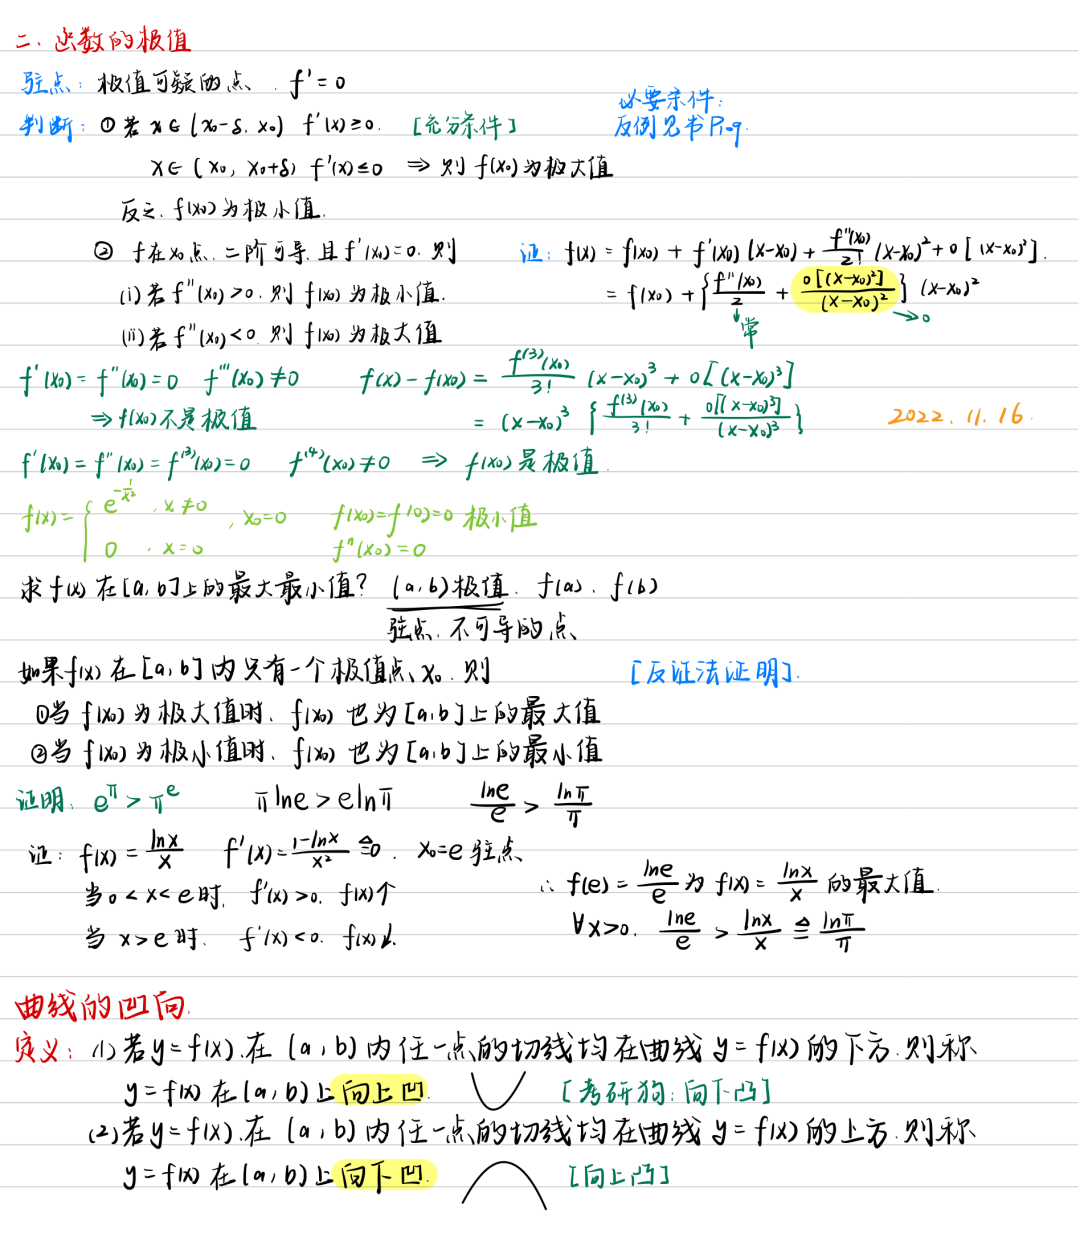 二、函数的极值
驻点：极值可疑的点、f'=0
判断：①若 x∈(x₀-δ, x₀) f'(x)≥0. [充分条件] 必要条件：
x∈(x₀, x₀+δ) f'(x)≤0 ⇒ 则 f(x₀)为极大值 反例见书
反之, f(x₀)为极小值.
② f在x₀点、二阶可导, 且f'(x₀)=0. 则 证: f(x) = f(x₀) + f'(x₀)(x-x₀) + f''(x₀)/2! (x-x₀)² + o[(x-x₀)²].
(i)若 f''(x₀)>0. 则 f(x₀) 为极小值. = f(x₀) + {f''(x₀)/2 + o[(x-x₀)²]/(x-x₀)²} (x-x₀)²
(ii)若 f''(x₀)<0 则 f(x₀) 为极大值 ↓常 →0
f'(x₀)=f''(x₀)=0 f'''(x₀)≠0 f(x)-f(x₀) = f⁽³⁾(x₀)/3! (x-x₀)³ + o[(x-x₀)³]
⇒ f(x₀)不是极值 = (x-x₀)³ {f⁽³⁾(x₀)/3! + o[(x-x₀)³]/(x-x₀)³} 2022.11.16.
f'(x₀)=f''(x₀)=f⁽³⁾(x₀)=0 f⁽⁴⁾(x₀)≠0 ⇒ f(x₀)是极值.
f(x)={ e^(-1/x²), x≠0 , x₀=0 f(x₀)=f(0)=0 极小值
0 , x=0 fⁿ(x₀)=0
求f(x)在[a,b]上的最大最小值? (a,b)极值、f(a)、f(b)
驻点、不可导的点、
如果f(x)在[a,b]内只有一个极值点、x₀. 则 [反证法证明].
①当 f(x₀)为极大值时、f(x₀)也为[a,b]上的最大值
②当 f(x₀)为极小值时、f(x₀)也为[a,b]上的最小值
证明: e^π > π^e πlne > elnπ lne/e > lnπ/π
证: f(x) = lnx/x f'(x)=(1-lnx)/x² ≜0. x₀=e 驻点、
当 0<x<e时, f'(x)>0. f(x)↑ ∴ f(e) = lne/e 为 f(x) = lnx/x 的最大值.
当 x>e 时. f'(x)<0. f(x)↓. ∀x>0. lne/e > lnx/x ≜ lnπ/π
曲线的凹向.
定义: (1)若y=f(x).在 (a,b)内任一点的切线均在曲线 y=f(x)的下方.则称
y=f(x)在(a,b)上向上凹. [考研狗：向下凸]
(2)若y=f(x).在 (a,b)内任一点的切线均在曲线 y=f(x)的上方.则称
y=f(x)在(a,b)上向下凹. [向上凸]